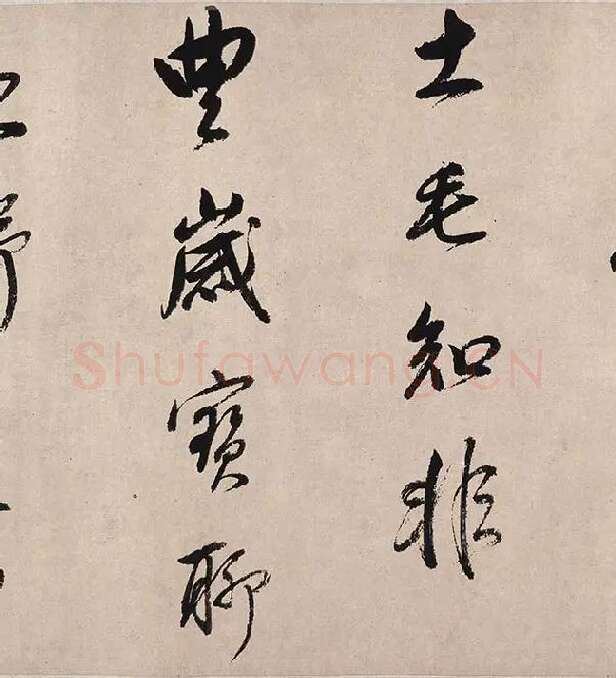 土毛知非
豐歲寶聊
Shufawang.CN